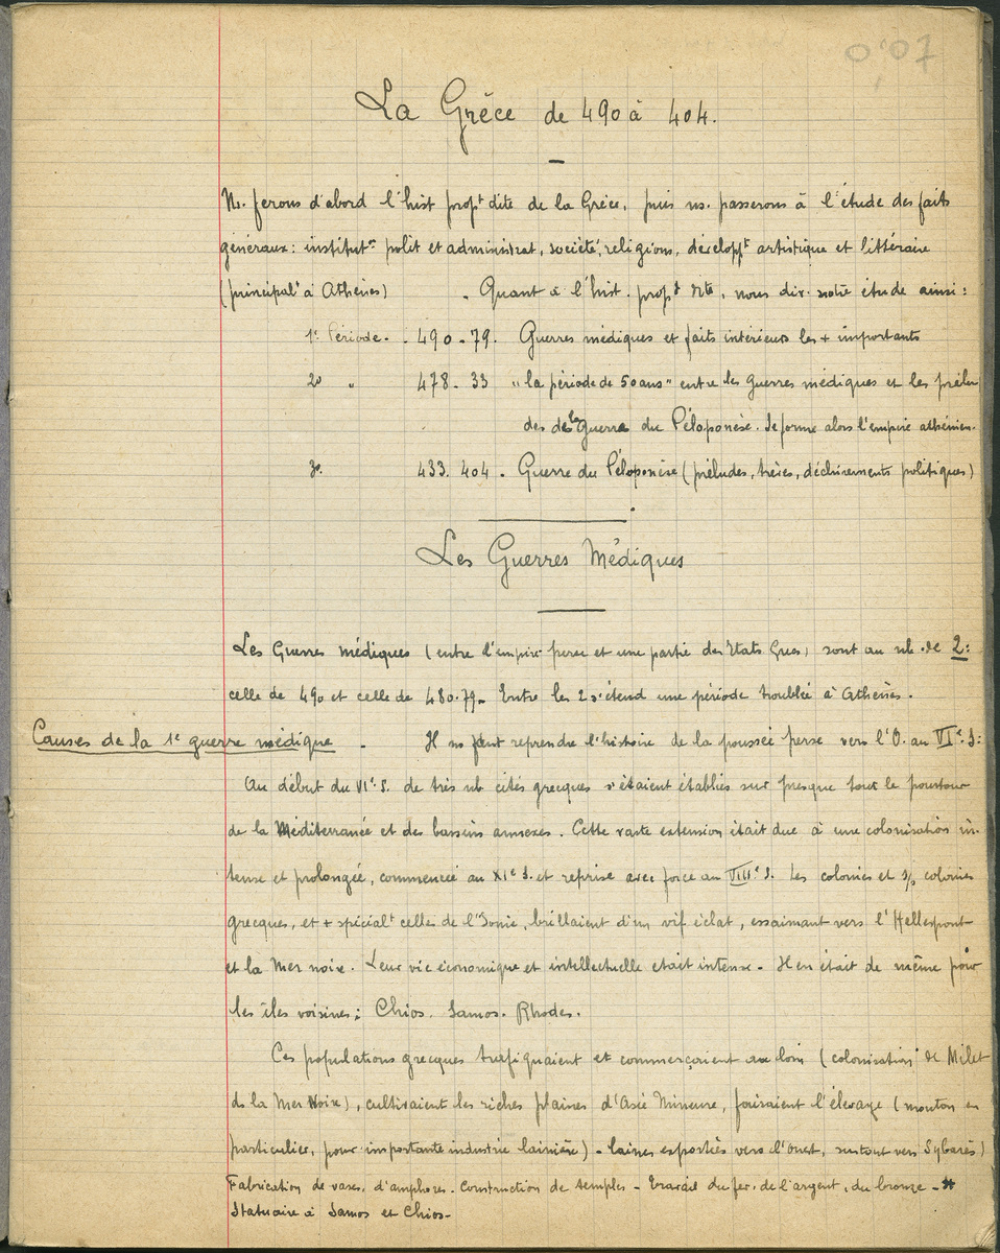 0,07
La Grèce de 490 à 404.
Ns. ferons d'abord l'hist propt dite de la Grèce, puis ns. passerons à l'étude des faits
généraux: institutns polit et administrat, société, religions, developpt artistique et littéraire
(principalt à Athènes) . Quant à l'hist. propt dite, nous div. notre étude ainsi:
1e Période. . 490-79. Guerres médiques et faits intérieurs les + importants
2o " 478-33 "la période de 50 ans" entre les Guerres médiques et les prélu
des de la Guerre du Péloponèse. Se forme alors l'empire athénien.
3o. 433.404. Guerre du Péloponèse (préludes, trèves, déchirements politiques)
Les Guerres Médiques
Les Guerres médiques (entre l'empire perse et une partie des Etats Grecs) sont au nb. de 2:
celle de 490 et celle de 480-79. Entre les 2 s'étend une période troublée à Athènes.
Causes de la 1e guerre médique . Il ns faut reprendre l'histoire de la poussée perse vers l'O. au VIe. S:
Au début du VIe. S. de très nb cités grecques s'étaient établies sur presque tout le pourtour
de la Méditerranée et des bassins annexes. Cette vaste extension était due à une colonisation in-
tense et prolongée, commencée au XIe S. et reprise avec force au VIIIe S. Les colonies et s/s colonies
grecques, et + spécialt celles de l'Ionie, brillaient d'un vif éclat, essaimant vers l'Hellespont
et la Mer noire. Leur vie économique et intellectuelle etait intense. Il en était de même pour
les îles voisines: Chios. Samos. Rhodes.
Ces populations grecques trafiquaient et commerçaient au loin (colonisation de Milet
ds la Mer Noire), cultivaient les riches plaines d'Asie Mineure, faisaient l'élevage (mouton en
particulier, pour importante industrie lainière) - laines exportées vers l'Ouest, surtout vers Sybaris)
Fabrication de vases, d'amphores. Construction de temples - Travail du fer, de l'argent, du bronze -
Statuaire à Samos et Chios-